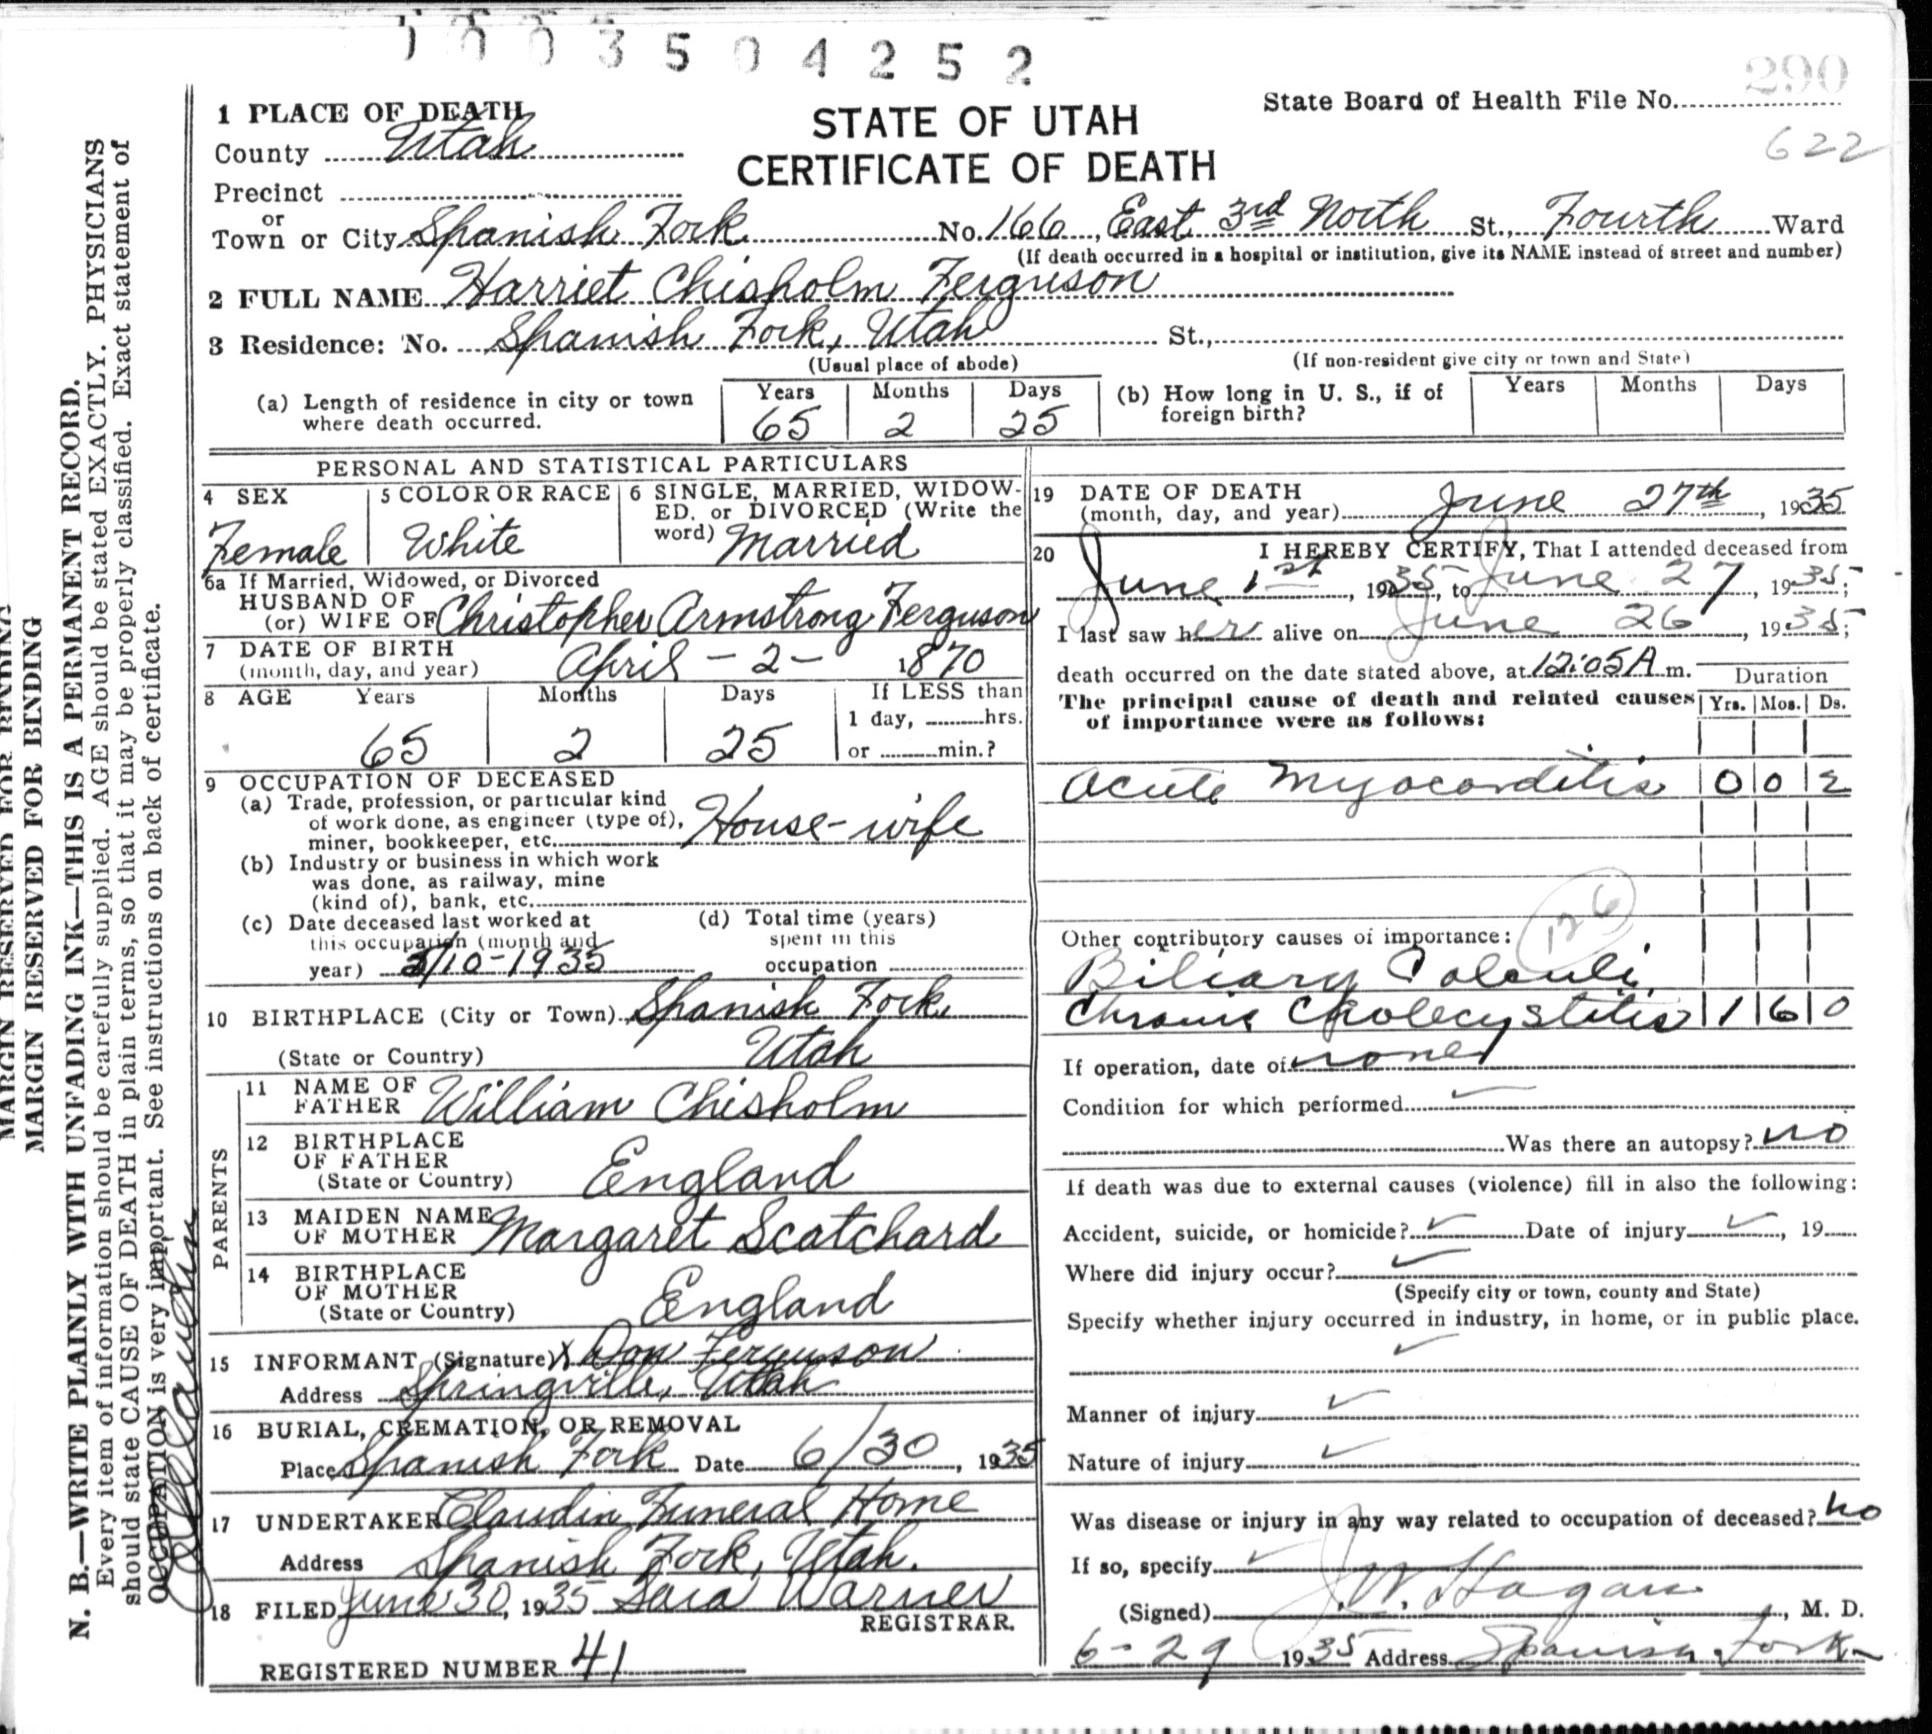 1003504252
290
State Board of Health File No.
622
STATE OF UTAH
CERTIFICATE OF DEATH
1 PLACE OF DEATH
County Utah
Precinct
or
Town or City Spanish Fork No. 166, East 3rd North St., Fourth Ward
(If death occurred in a hospital or institution, give its NAME instead of street and number)
2 FULL NAME Harriet Chisholm Ferguson
3 Residence: No. Spanish Fork, Utah St.,
(Usual place of abode) (If non-resident give city or town and State)
(a) Length of residence in city or town where death occurred. Years 65 Months 2 Days 25
(b) How long in U. S., if of foreign birth? Years Months Days
PERSONAL AND STATISTICAL PARTICULARS
4 SEX Female
5 COLOR OR RACE White
6 SINGLE, MARRIED, WIDOW-
ED, or DIVORCED (Write the
word) Married
6a If Married, Widowed, or Divorced
HUSBAND OF
(or) WIFE OF Christopher Armstrong Ferguson
7 DATE OF BIRTH
(month, day, and year) April - 2 - 1870
8 AGE Years Months Days If LESS than
1 day, hrs.
65 2 25 or min.?
9 OCCUPATION OF DECEASED
(a) Trade, profession, or particular kind
of work done, as engineer (type of),
miner, bookkeeper, etc. House-wife
(b) Industry or business in which work
was done, as railway, mine
(kind of), bank, etc.
(c) Date deceased last worked at
this occupation (month and
year) 5/10-1935
(d) Total time (years)
spent in this
occupation
10 BIRTHPLACE (City or Town) Spanish Fork,
(State or Country) Utah
PARENTS
11 NAME OF
FATHER William Chisholm
12 BIRTHPLACE
OF FATHER
(State or Country) England
13 MAIDEN NAME
OF MOTHER Margaret Scatchard
14 BIRTHPLACE
OF MOTHER
(State or Country) England
15 INFORMANT (Signature) X Don Ferguson
Address Springville, Utah
16 BURIAL, CREMATION, OR REMOVAL
Place Spanish Fork Date 6/30, 1935
17 UNDERTAKER Claudin Funeral Home
Address Spanish Fork, Utah.
18 FILED June 30, 1935 Sara Warner
REGISTRAR.
REGISTERED NUMBER 41
19 DATE OF DEATH
(month, day, and year) June 27th, 1935
20 I HEREBY CERTIFY, That I attended deceased from
June 1st, 1935, to June 27, 1935;
I last saw her alive on June 26, 1935;
death occurred on the date stated above, at 12:05 A m.
The principal cause of death and related causes
of importance were as follows:
Duration
Yrs. Mos. Ds.
Acute Myocarditis 0 0 2
126
Other contributory causes of importance:
Biliary Calculi,
Chronic Cholecystitis 1 6 0
If operation, date of none
Condition for which performed
Was there an autopsy? no
If death was due to external causes (violence) fill in also the following:
Accident, suicide, or homicide? Date of injury , 19
Where did injury occur?
(Specify city or town, county and State)
Specify whether injury occurred in industry, in home, or in public place.
Manner of injury
Nature of injury
Was disease or injury in any way related to occupation of deceased? no
If so, specify
(Signed) J. W. Hagan, M. D.
6-29 1935 Address Spanish Fork
MARGIN RESERVED FOR BINDING
MARGIN RESERVED FOR BINDING
N. B.—WRITE PLAINLY WITH UNFADING INK—THIS IS A PERMANENT RECORD.
Every item of information should be carefully supplied. AGE should be stated EXACTLY. PHYSICIANS
should state CAUSE OF DEATH in plain terms, so that it may be properly classified. Exact statement of
OCCUPATION is very important. See instructions on back of certificate.